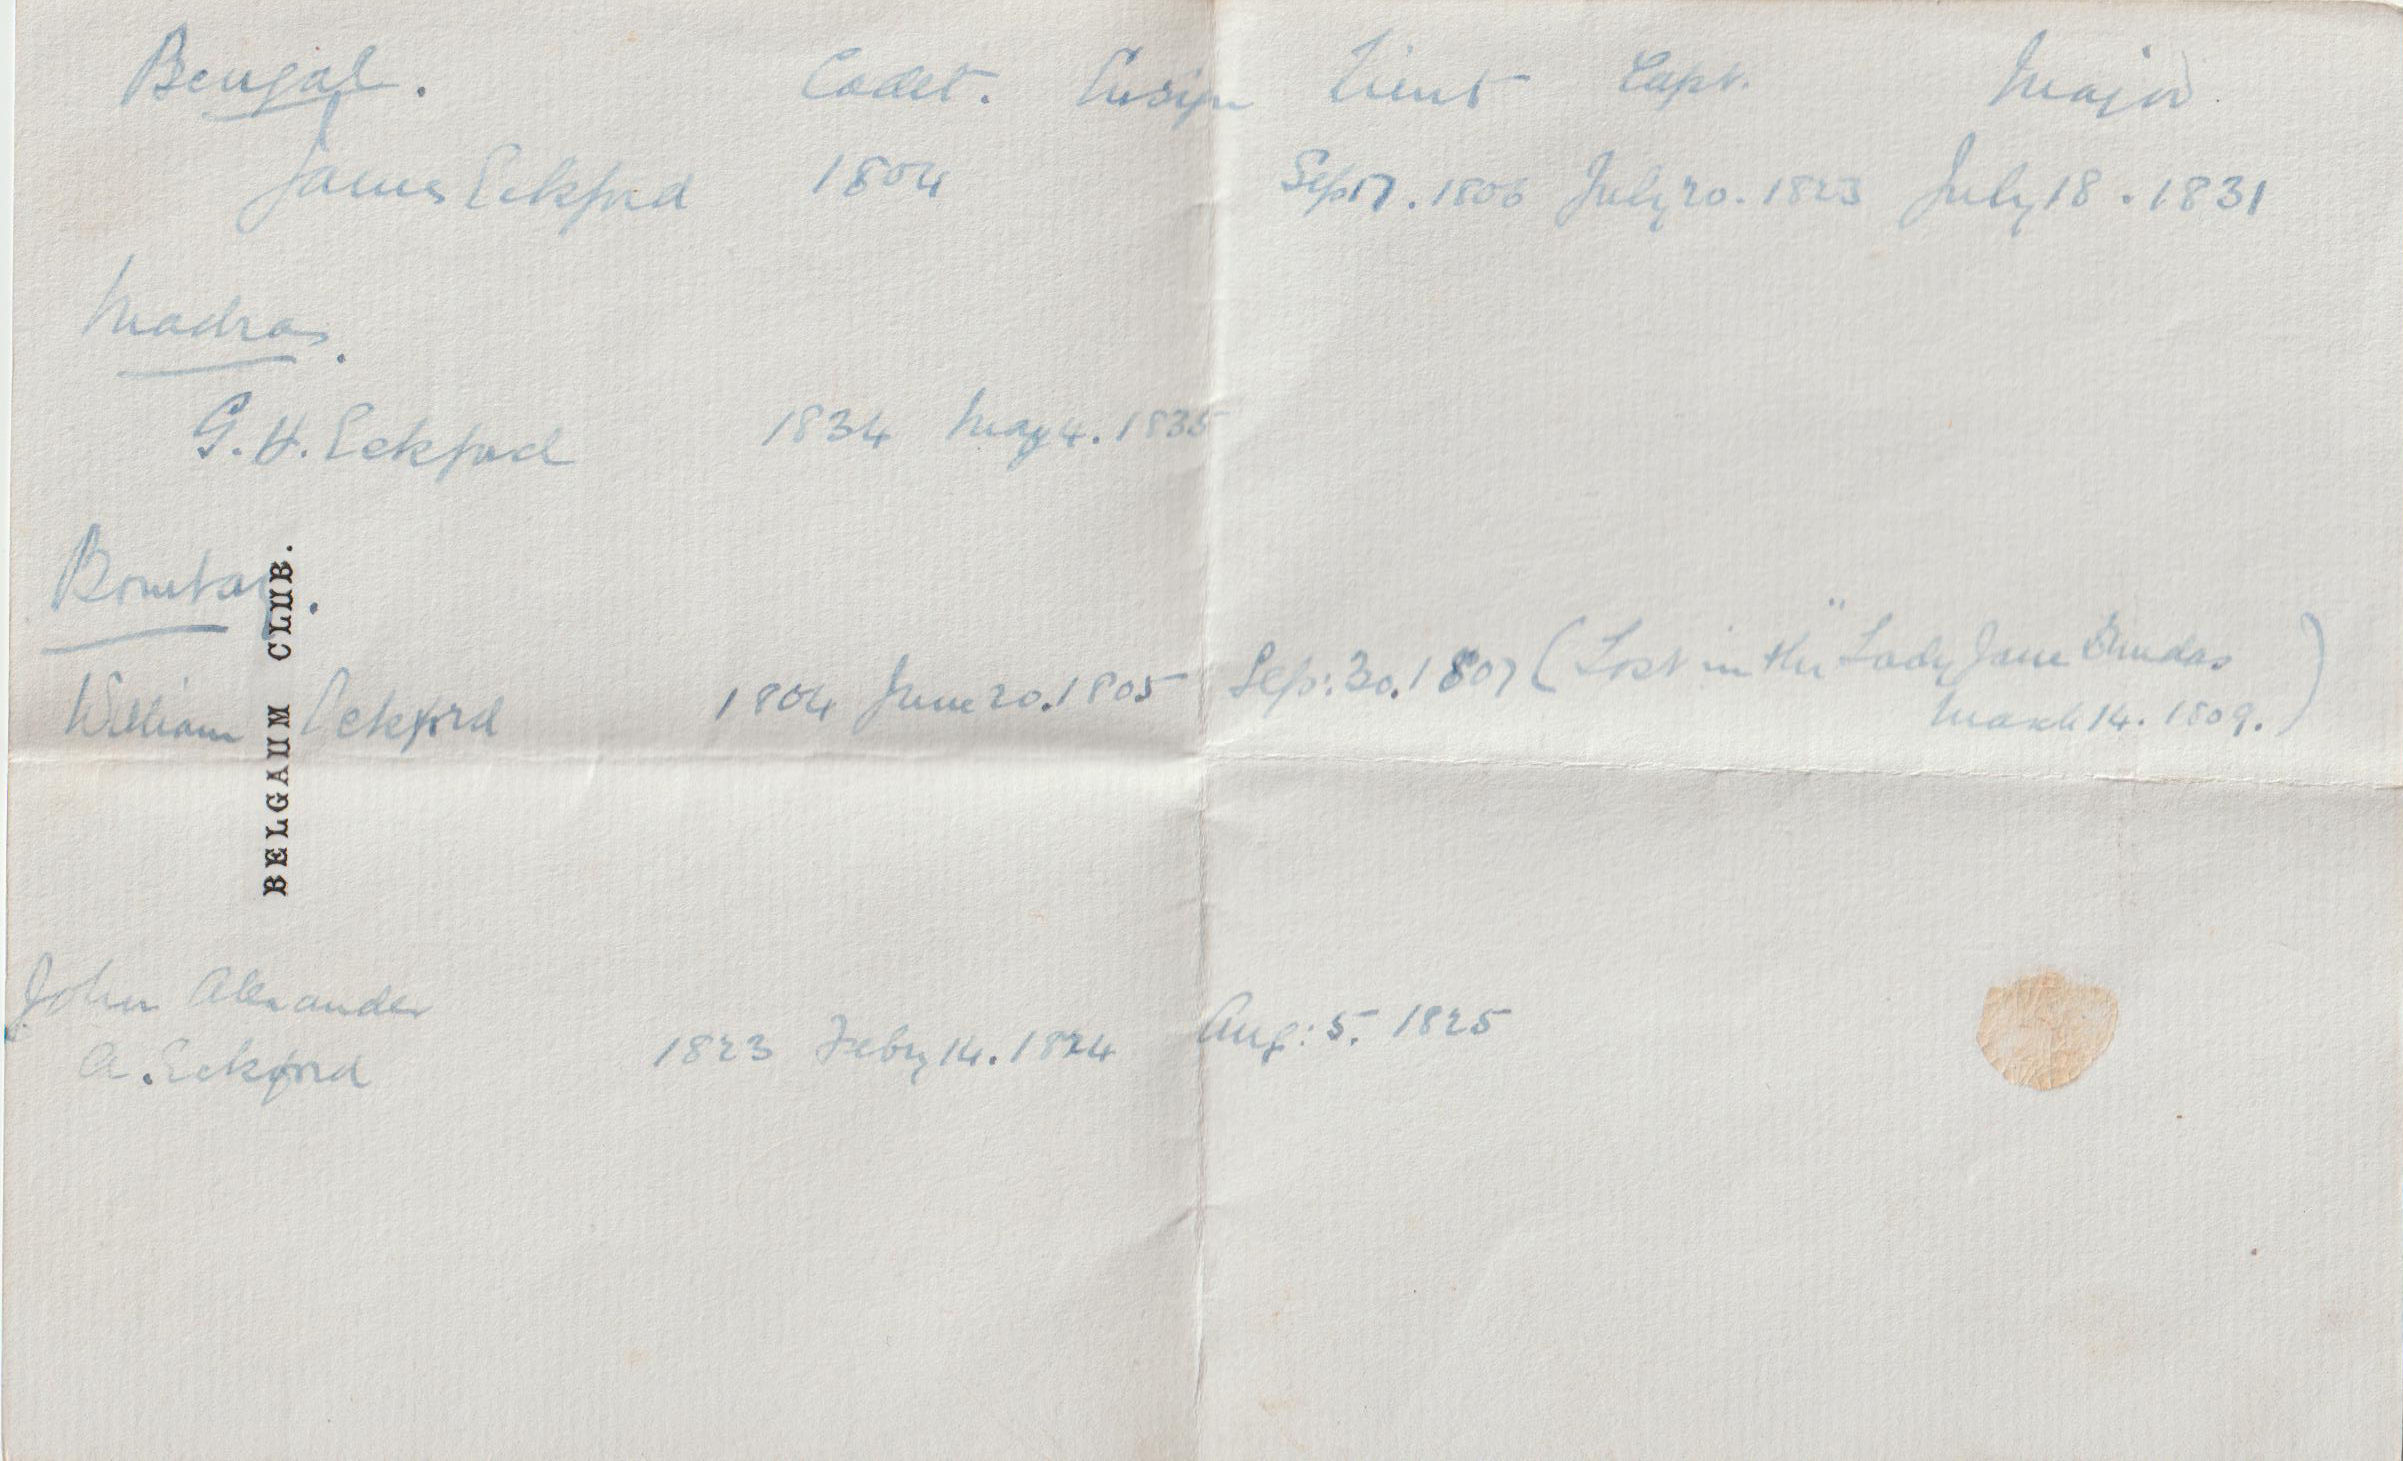 Bengal. Cadet. Ensign Lieut Capt. Major
James Eckford 1804 Sep 17. 1806 July 20. 1823 July 18. 1831
Madras.
G. H. Eckford 1834 May 4. 1835
Bombay.
William Eckford 1804 June 20. 1805 Sep: 30. 1807 (Lost in the "Lady Jane Dundas
March 14. 1809.)
BELGAUM CLUB.
John Alexander
A. Eckford 1823 Feby 14. 1824 Aug: 5. 1825